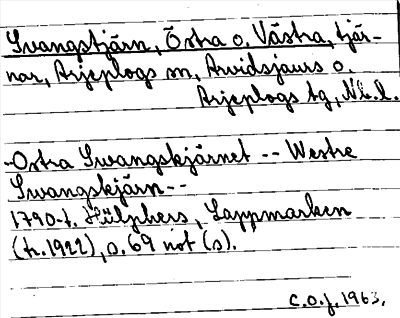 Svangstjärn, Östra o. Västra, tjär-
nar, Arjeplogs sn, Arvidsjaurs o.
Arjeplogs tg, Nb.l.
-Ostra Swangskjärnet -- Westre
Swangskjärn--
1790-t. Hülphers, Lappmarken
(tr.1922), s.69 not (s).
C.O.J. 1963.